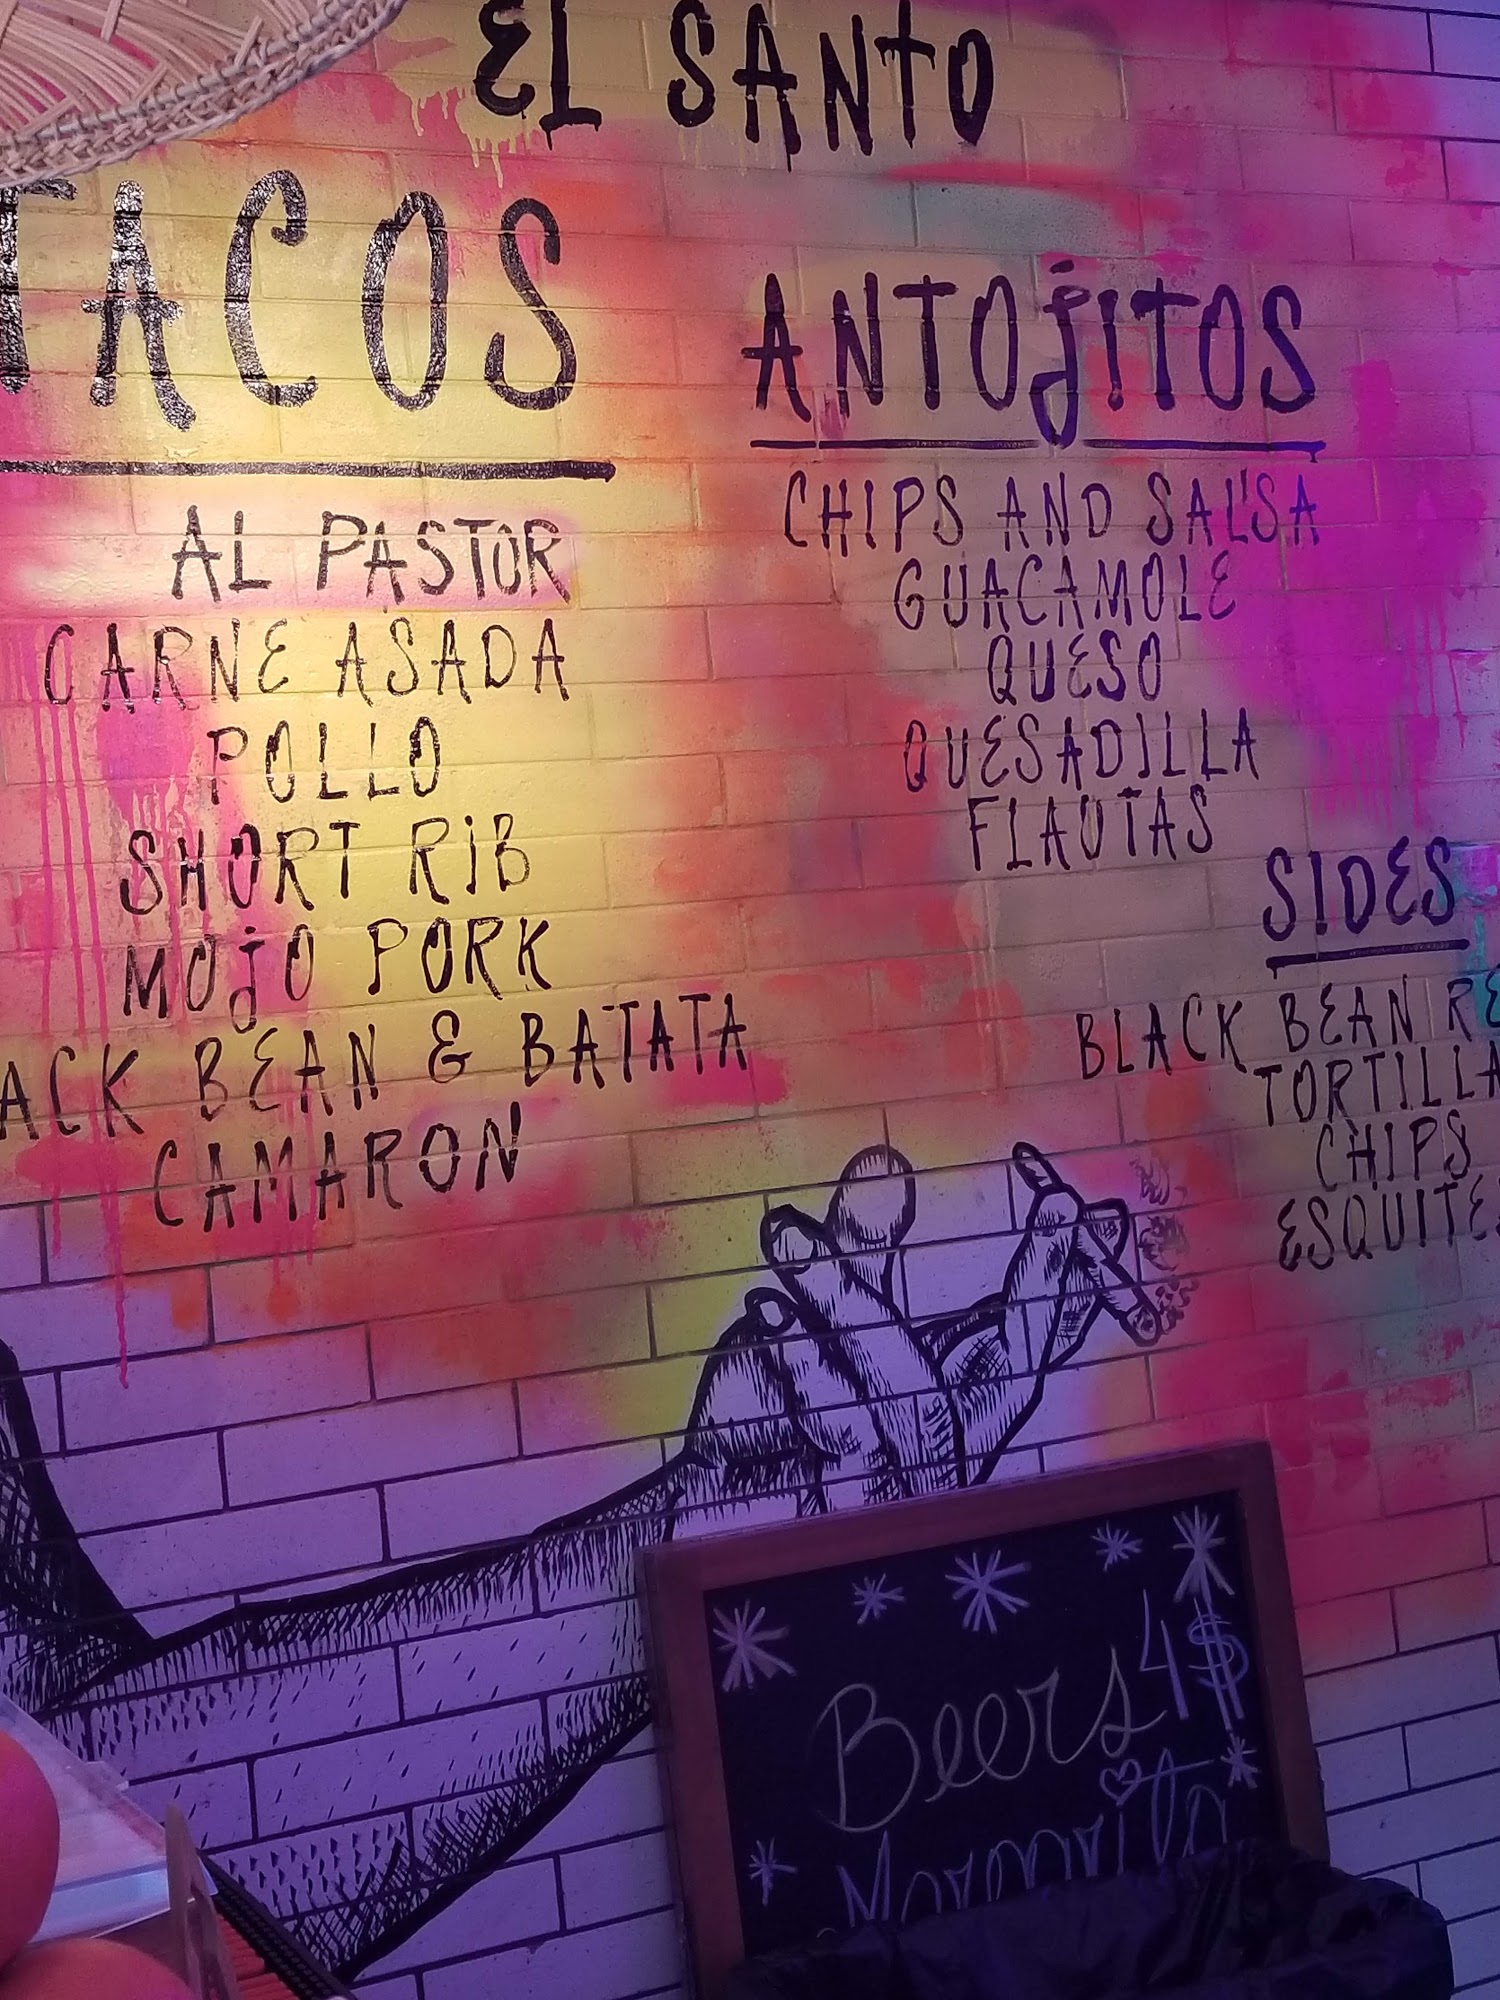 EL SANTO
TACOS
AL PASTOR
CARNE ASADA
POLLO
SHORT RIB
MOJO PORK
ACK BEAN & BATATA
CAMARON
ANTOJITOS
CHIPS AND SALSA
GUACAMOLE
QUESO
QUESADILLA
FLAUTAS
SIDES
BLACK BEAN RE
TORTILLA
CHIPS
ESQUITES
Beers 4$
Morenita